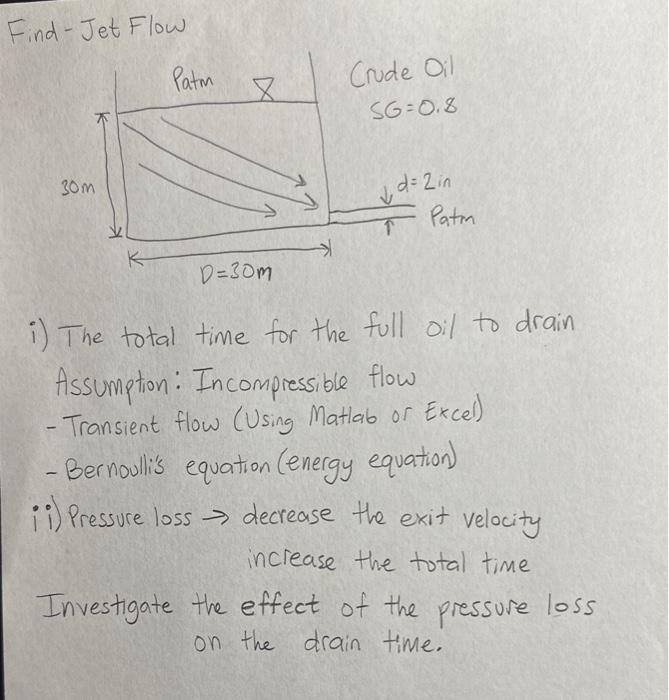 Find-Jet Flow
Patm
Crude Oil
SG=0.8
30m
d=2in
Patm
D=30m
i) The total time for the full oil to drain
Assumption: Incompressible flow
- Transient flow (Using Matlab or Excel)
- Bernoulli's equation (energy equation)
ii) Pressure loss → decrease the exit velocity
increase the total time
Investigate the effect of the pressure loss
on the drain time.